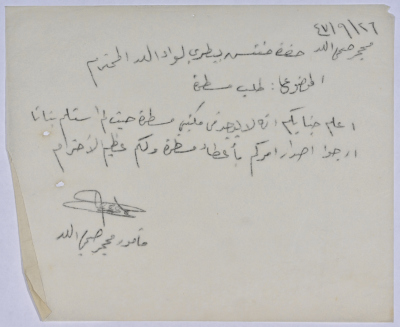 ٤٧/٩/٢٦
محجر صحي اللد
حضرة مفتش بيطري لواء اللد المحترم
الموضوع: طلب مسطرة
اعلم جنابكم انه لا يوجد في مكتبي مسطرة حيث لم استلم بتاتا
ارجوا اصدار امركم بأعطاء مسطرة ولكم عظيم الأحترام
مأمور محجر صحي اللد